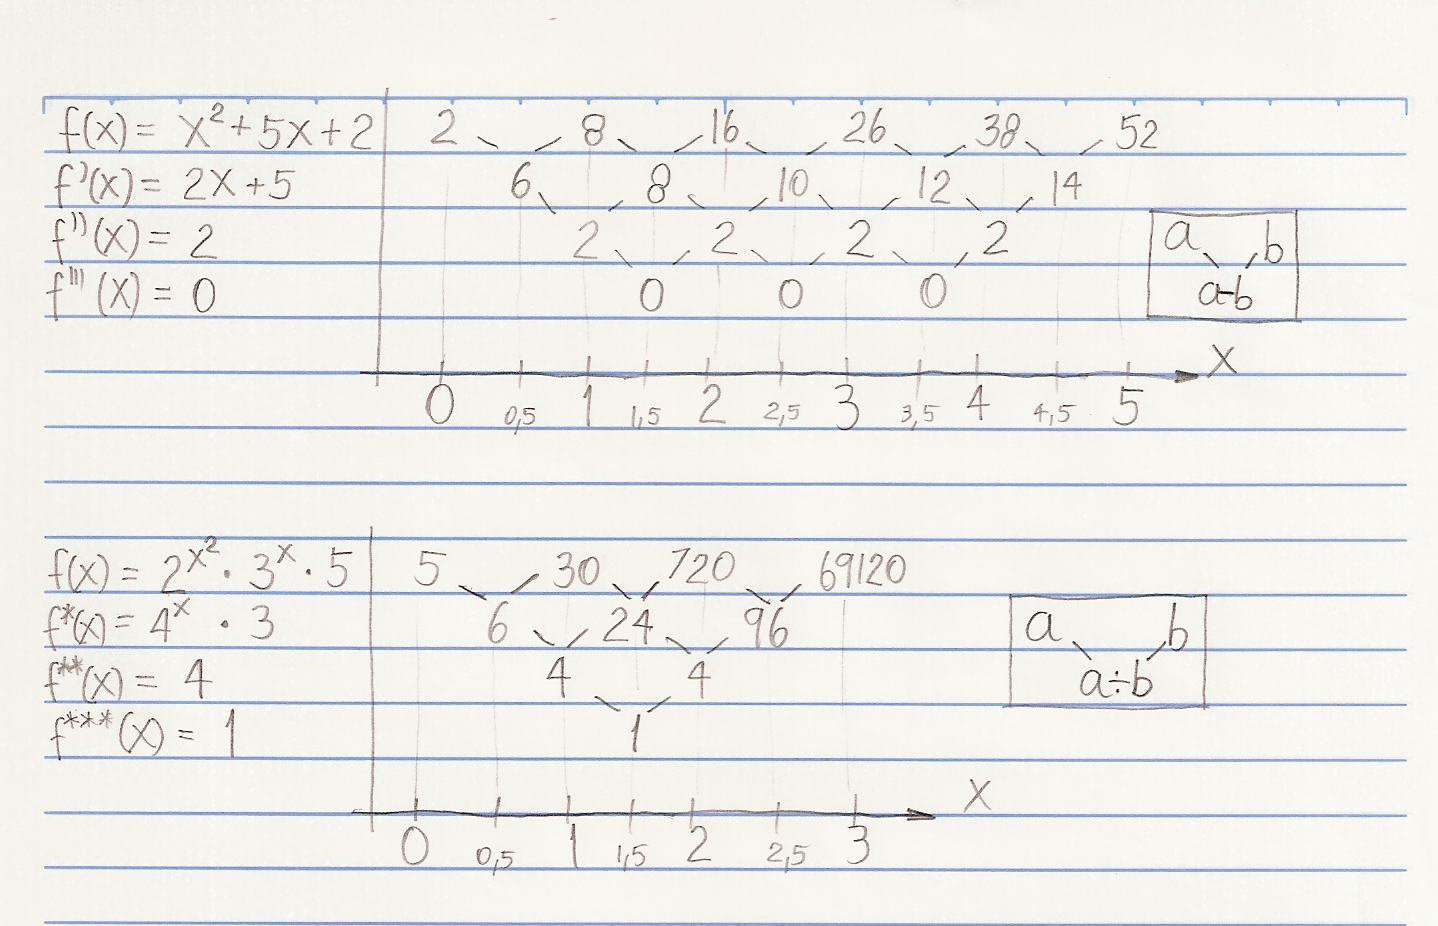 f(x) = x²+5x+2 2 8 16 26 38 52
f'(x) = 2x+5 6 8 10 12 14
f''(x) = 2 2 2 2 2 a b
f'''(x) = 0 0 0 0 a-b
x
0 0,5 1 1,5 2 2,5 3 3,5 4 4,5 5
f(x) = 2^x² · 3^x · 5 5 30 720 69120
f*(x) = 4^x · 3 6 24 96 a b
f**(x) = 4 4 4 a÷b
f***(x) = 1 1
x
0 0,5 1 1,5 2 2,5 3